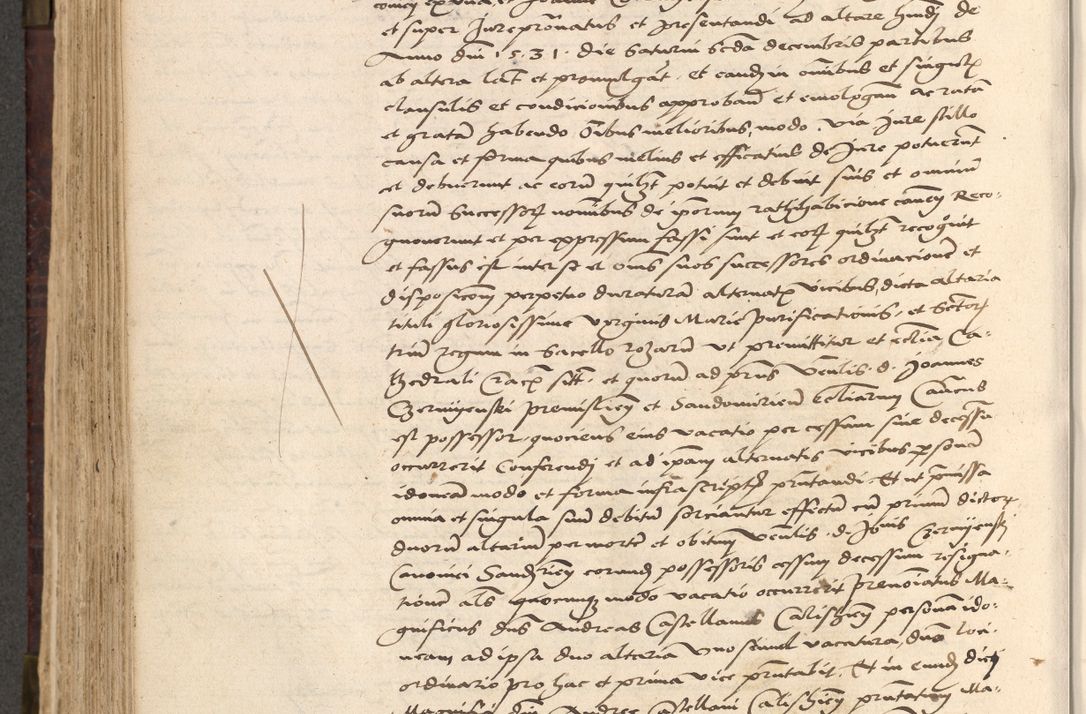 et super Jurepronatus et presentandi ad altare hmdj de
Anno dni 1.5.31. die Saturni scda decembris partibus
ab altera lat et promulgat. et eandem in omnibus et singul
clausulis et condicionibus approband et emologand ac ratam
et gratam habendo Oibus melioribus, modo, via Jure stillo
causa et forma quibus melius et efficatius de Jure potuerunt
et debuerunt ac eorum quilzt potuit et debuit suis et omnium
suorum Successorum nominibus de ipsorum rathihabicione canem Reco-
gnoverunt et per expressum fassi sunt et eorum quilzt recognit
et fassus est inter se et oms suos successores ordinacionem et
disposicionem perpetuo duraturam alternatis vicibus, dicta altaria
tituli gloriosissime virginis Marie Purificationis, et Sctorum
trium regum in Sacello rozarum ut premittitur et ecclia Ca-
thedrali Crac sitt. et quorum ad pns Venlis. d. Joannes
Czermyenski Premislien et Sandomirien Ecliarum Canons
est possessor, quociens eius vacatio per cessum sive decessum
occurrerit Conferendi et ad ipsam alternatis vicibus personam
idoneam modo et forma infrascriptis pntandi. Et ut premissa
omnia et singula suum debitum sorciantur effectum cum primum dictorum
duorum altarium per mortem et obitum Venlis. d. Jonis Czermyenskj
Canonici Sandzirien eorundem possessoris cessum decessum resigna-
tionem als quocumque modo vacatio occurrerit Prenominatus Ma-
gnificus dns Andreas Castellanus Calischien personam ido-
neam ad ipsa duo altaria uno simul vacatura, dno loci
ordinario pro hac et prima vice pntabit. Et in eundem dictj
Magnifici dni Andree Castellani Calischien pntatum Ma-